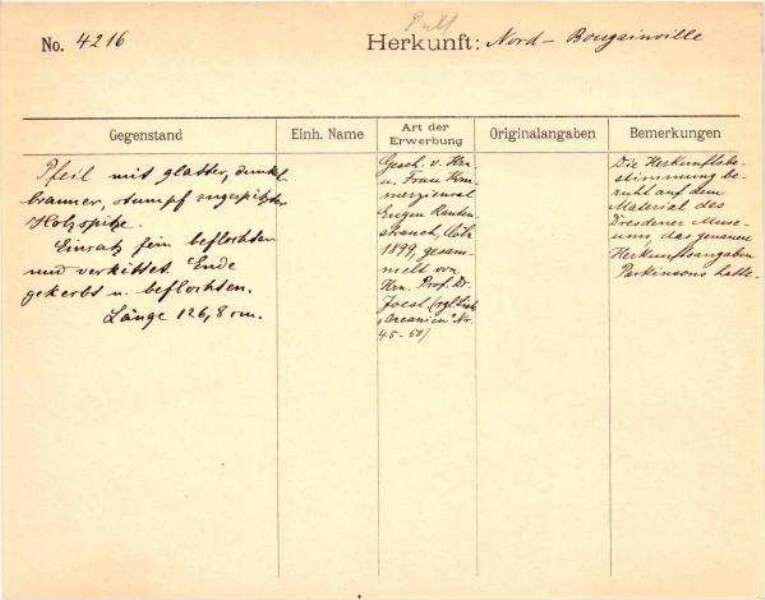 No. 4216
Herkunft: Nord-Bougainville
Gegenstand
Einh. Name
Art der Erwerbung
Originalangaben
Bemerkungen
Pfeil mit glatter, dunkel
brauner, stumpf zugespitzter
Holzspitze.
Einsatz fein beflochten
und verkittet. Ende
gekerbt u. beflochten.
Länge 126,8 cm.
Gesch. v. Hrn
u. Frau Kom-
merzienrat
Eugen Rauten-
strauch, Cöln
1899, gesam-
melt von
Hrn. Prof. Dr.
Joest (vgl. List
"Oceanien" Nr.
45-51)
Die Herkunftsbe-
stimmung be-
ruht auf dem
Material des
Dresdener Muse-
ums, das genauen
Herkunftsangaben
Parkinsons hatte.